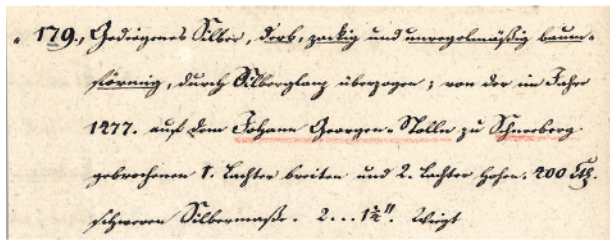 179., Gediegenes Silber, derb, zackig und unregelmäßig baum-
förmig, durch Silberglanz überzogen; von der im Jahre
1477. auf dem Johann Georgen-Stolln zu Schneeberg
gebrochenen 1. Lachter breiten und 2. Lachter hohen. 400 Ctr.
schweren Silbermaße. 2... 1½". Wiegt